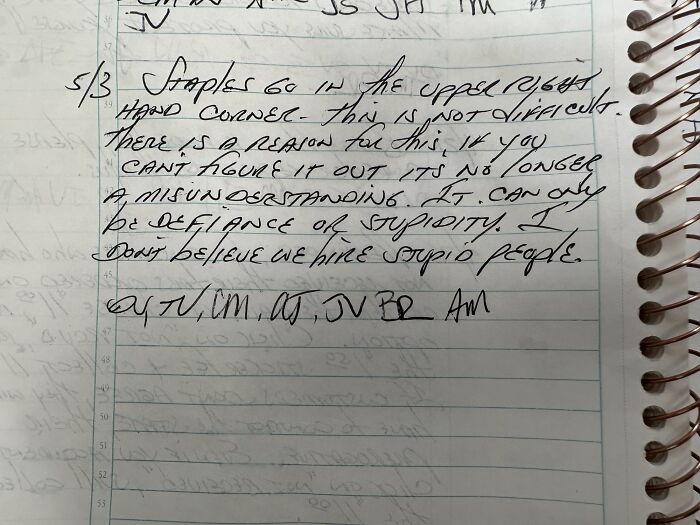 JS JH TM
JV
5/3 Staples Go in the upper right
HAND CORNER - this is not difficult.
there is a reason for this, if you
can't figure it out its no longer
a misunderstanding. It can only
be defiance or stupidity. I
don't believe we hire stupid people.
TV, CM, AJ, JV BR AM
48
50
51
52
53